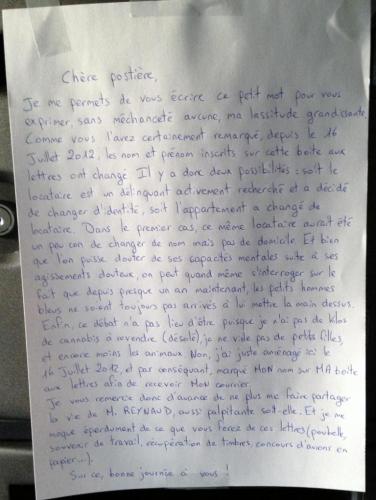 Chère postière,
Je me permets de vous écrire ce petit mot pour vous
exprimer, sans méchanceté aucune, ma lassitude grandissante.
Comme vous l'avez certainement remarqué, depuis le 16
Juillet 2012, les nom et prénom inscrits sur cette boite aux
lettres ont changé. Il y a donc deux possibilités : soit le
locataire est un délinquant activement recherché et a décidé
de changer d'identité, soit l'appartement a changé de
locataire. Dans le premier cas, ce même locataire aurait été
un peu con de changer de nom mais pas de domicile. Et bien
que l'on puisse douter de ses capacités mentales suite à ses
agissements douteux, on peut quand même s'interroger sur le
fait que depuis presque un an maintenant, les petits hommes
bleus ne soient toujours pas arrivés à lui mettre la main dessus.
Enfin, ce débat n'a pas lieu d'être puisque je n'ai pas de kilos
de cannabis à revendre (désolé), je ne viole pas de petites filles,
et encore moins les animaux. Non, j'ai juste aménagé ici le
16 Juillet 2012, et par conséquent, marqué MON nom sur MA boite
aux lettres afin de recevoir MON courrier.
Je vous remercie donc d'avance de ne plus me faire partager
la vie de M. REYNAUD, aussi palpitante soit-elle. Et je me
moque éperdument de ce que vous ferez de ces lettres (poubelle,
souvenir de travail, récupération de timbres, concours d'avions en
papier...).
Sur ce, bonne journée à vous !